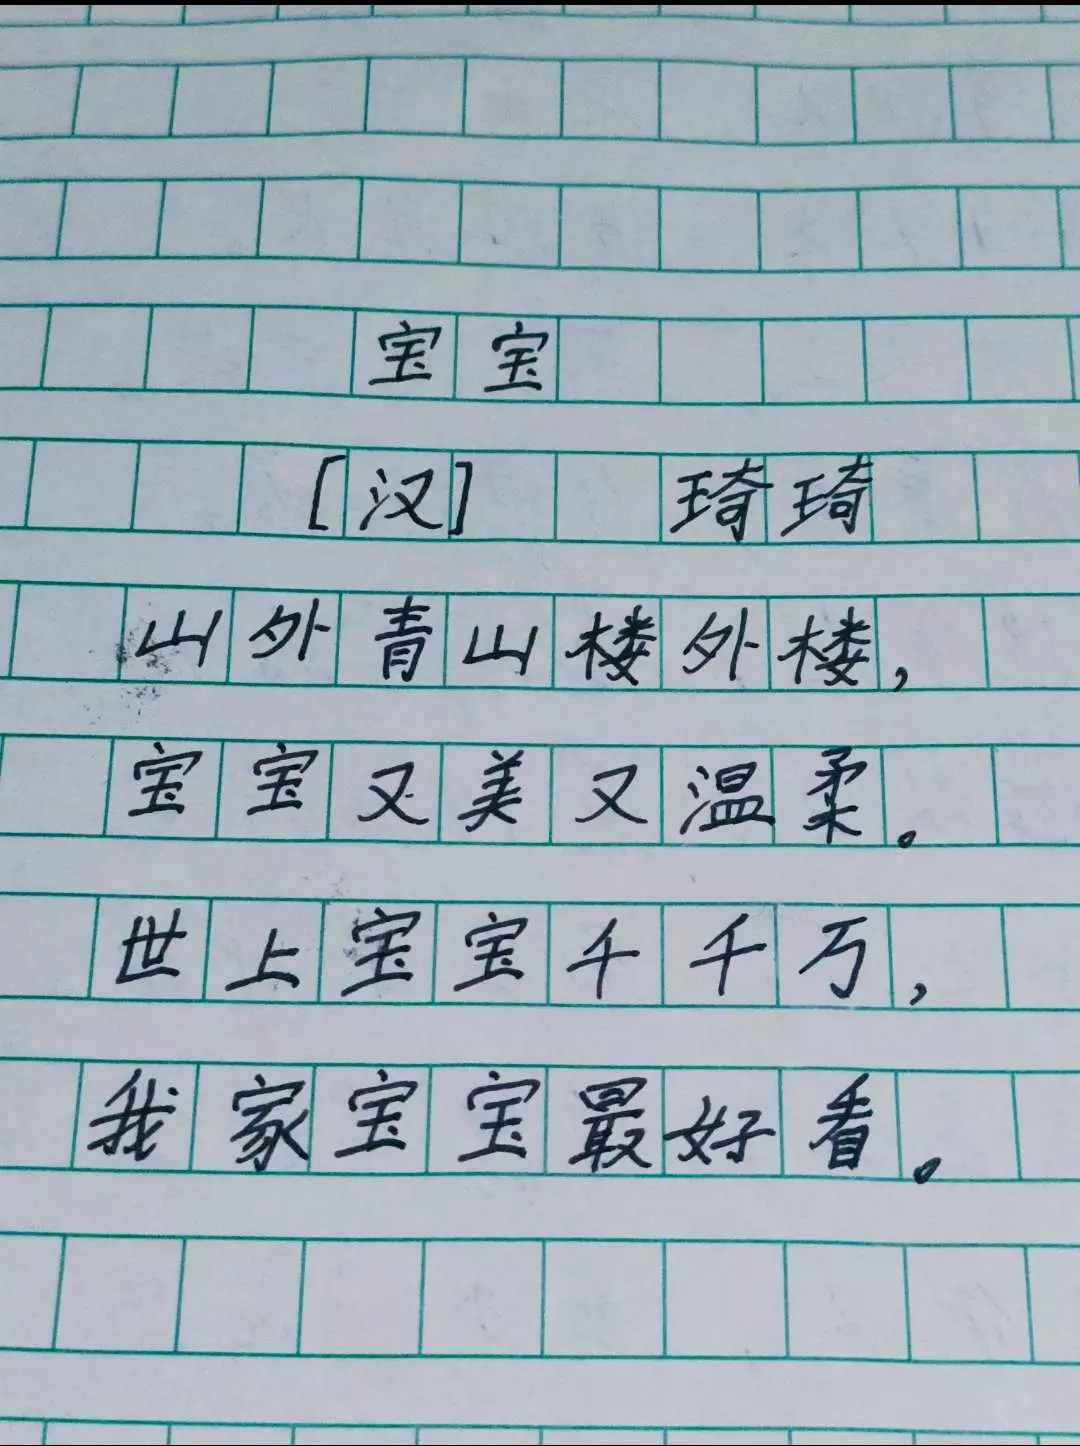 宝宝
[汉] 琦琦
山外青山楼外楼,
宝宝又美又温柔。
世上宝宝千千万,
我家宝宝最好看。